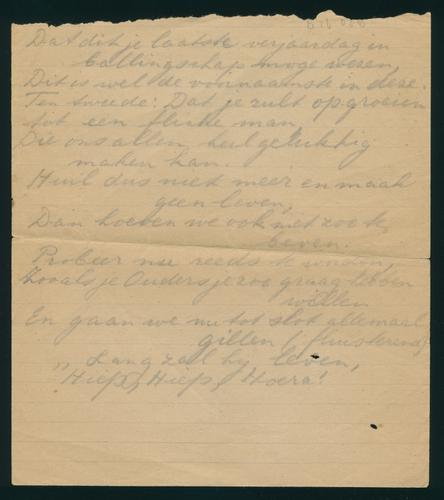 Dat dit je laatste verjaardag in
ballingschap moge wezen,
Dit is wel de voornaamste in deze.
Ten tweede: Dat je zult opgroeien
tot een flinke man,
Die ons allen heel gelukkig
maken kan.
Huil dus niet meer en maak
geen leven,
Dan hoeven we ook niet zoo te
beven.
Probeer nu reeds te worden,
Zooals je Ouders je zoo graag hebben
willen
En gaan we nu tot slot allemaal
gillen (fluisterend)
"Lang zal hij leven,
Hiep, Hiep, Hoera!